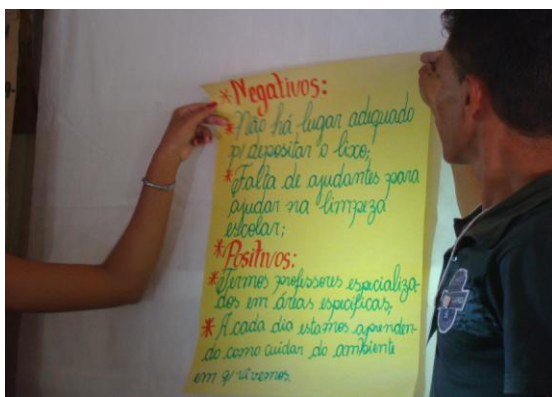 * Negativos:
* Não há lugar adequado
p/ depositar o lixo;
* Falta de ajudantes para
ajudar na limpeza
escolar;
* Positivos:
* Termos professores especializa-
dos em áreas específicas;
* A cada dia estamos aprenden-
do como cuidar do ambiente
em q/ vivemos.